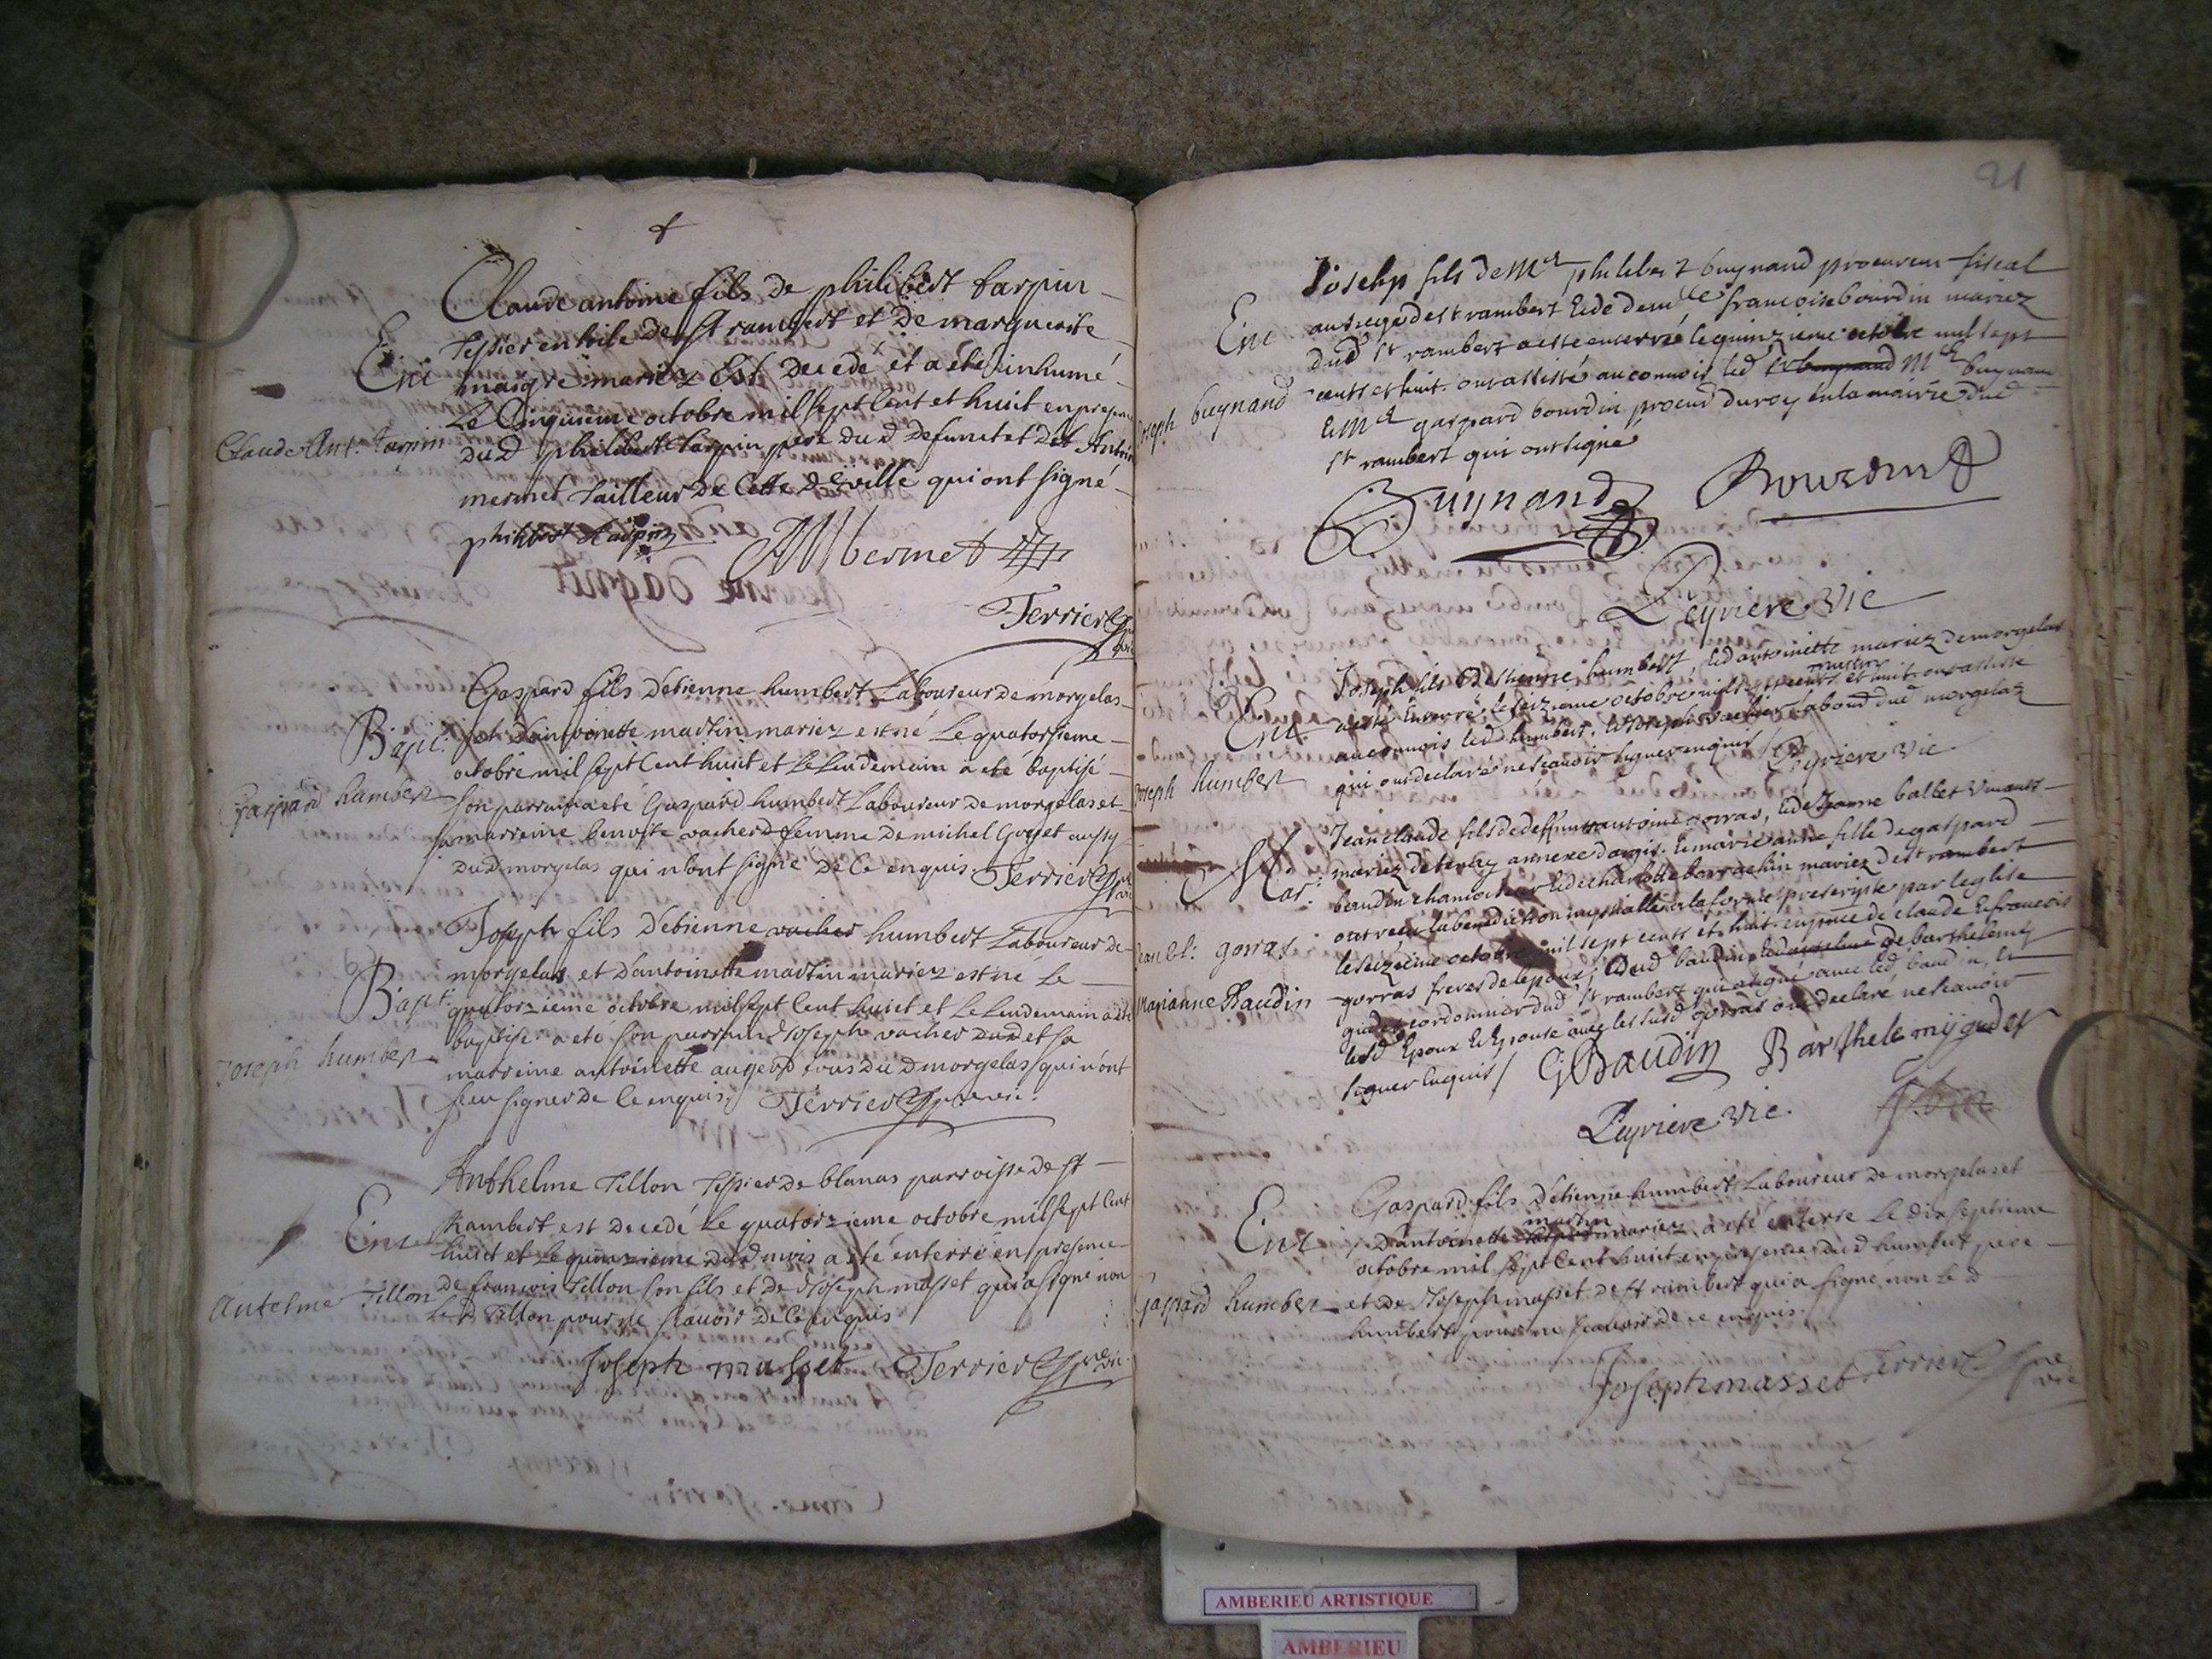 Claude antoine fils de philibert tarpin
tessier en toile de st rambert et de marguerite
Ent
maigre mariez Est decedé et a été inhumé
Le Cinquieme octobre mil sept Cent et huict en presence
Claude Ant. tarpin
dud philibert tarpin pere dud defunct et de
mermet tailleur de Cette d ville qui ont signé
philibert tarpin
AMermet
Terrier
Gaspard fils detienne humbert Laboureur de morgelas
Bapt.
et dantoinette martin mariez est né Le quatorsieme
octobre mil sept Cent huict et Le Lendemain a eté baptisé
Gaspard humbert
son parrain a eté Gaspard humbert Laboureur de morgelas et
sa marreine benoiste vacher femme de michel aussy
dud morgelas qui n'ont signé de Ce enquis. Terrier
Joseph fils détienne vacher humbert Laboureur de
morgelas et d'antoinette martin mariez est né Le
Bapt.
quatorzieme octobre mil sept Cent huict et Le Lendemain a été
baptisé a eté son parrain Joseph vacher dud et sa
Joseph humbert
marreine antoinette auger tous dud morgelas qui n'ont
sceu signer de Ce enquis. Terrier
Anthelme Tillon tessier de blanas parroisse de st
Rambert est decedé Le quatorzieme octobre mil sept Cent
Ent
huict et Le quinzieme dud mois a eté enterré en presence
de francois Tillon son fils et de Joseph masset qui a signé non
Antelme Tillon
Led Tillon pour ne scavoir de Ce enquis
Joseph masset Terrier vic.
21
Josehp fils de Mre philibert buynand procureur fiscal
au siege de st rambert & de demlle francoise bourdin mariez
Ent
dud st rambert a esté enterré le quinzieme octobre mil sept
cents et huit. ont assisté au convois led sr buynand Mre buynand
Joseph buynand
& Mre gaspard bourdin procur du roy en la mairie dud
st rambert qui ont signé
Buynand Bourdin
Peyriere vic
Joseph fils d'estienne humbert, & d'antoinette mariez de morgelas
martin
Ent.
a esté enterré le seizieme octobre mil sept cents et huit. ont assisté
au convois led humbert, & Joseph vacher laboud dud morgelas
Joseph humbert
qui ont declaré ne scavoir signer enquis / Peyriere vic
Jean claude fils de deffunt antoine gorras, & de Jeanne ballet vivants
mariez de tenay annexe dargis. & marie anne fille de gaspard
Mar.
baudin chamoiseur & de charlotte barrachin mariez de st rambert
ont receu la benediction nuptialle en la forme prescripte par leglise
Jean Cl. gorras
le seizieme octobre mil sept cents et huit. en pnce de claude & francois
gorras freres de lepoux; dud baudin, & de barthelemy
Marianne Baudin
cordonnier dud st rambert qui a signé avec led baudin, &
lesd Epoux & Epouse avec les susd gorras ont declaré ne scavoir
signer enquis / GBaudin Barthelemy
Peyriere vic.
Gaspard fils d'étienne humbert Laboureur de morgelas et
martin
Ent
d'antoinette mariez a eté enterré Le dix septieme
octobre mil sept Cent huict en presence dud humbert pere
Gaspard humbert
et de Joseph masset de st rambert qui a signé non Le d
humbert pour ne scavoir de ce enquis.
Joseph masset Terrier vic
AMBERIEU ARTISTIQUE
AMBERIEU